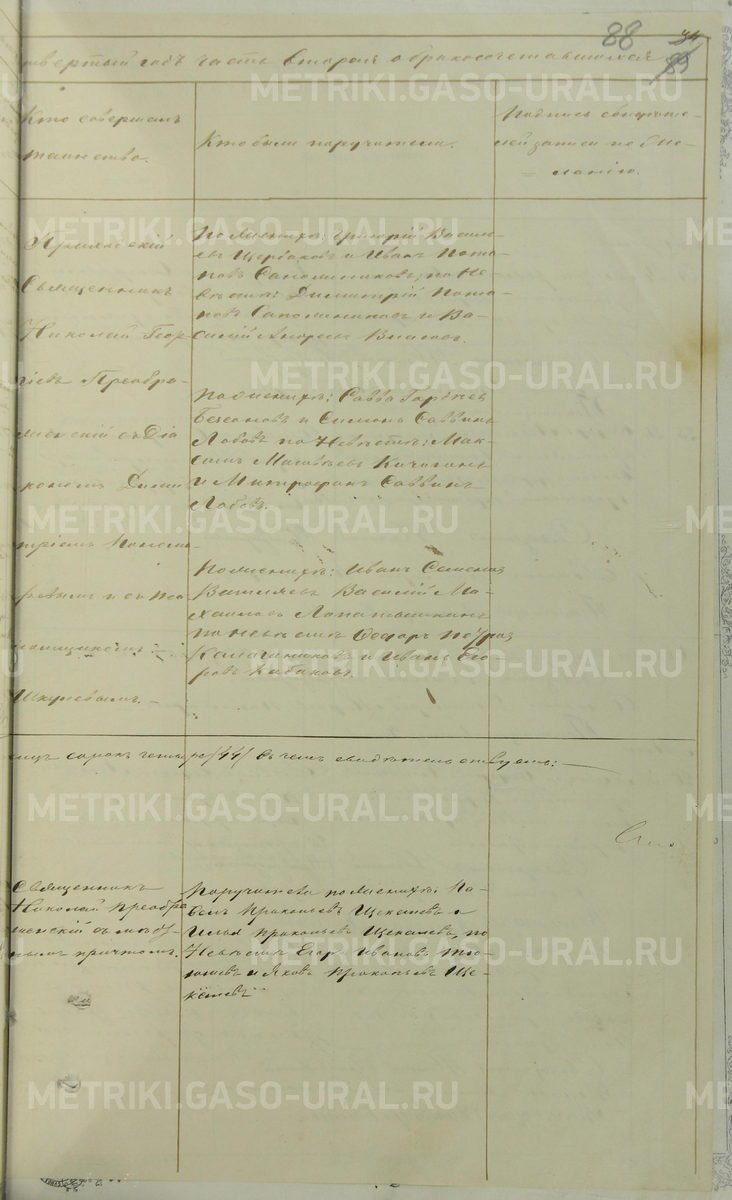 88
85
твертый годъ часть вторая о бракосочетавшихся
Кто совершалъ
таинство.
Кто были поручители.
Подпись свидѣте-
лей записи по же-
ланію.
Священникъ
Николай Геор-
гіевъ Преобра-
женскій съ Діа
кономъ Дими
тріемъ Понома-
ревымъ и съ Пса
ломщикомъ
Шкулевымъ.
По женихѣ: Григорій Василь-
евъ Щербаковъ и Иванъ Пота-
повъ Сапожниковъ; по Не-
вѣстѣ: Димитрій Пота-
повъ Сапожниковъ и Ва-
силій Андреевъ Власовъ.
По женихѣ: Савва
и Симонъ Саввинъ
Лобовъ по Невѣстѣ: Мак-
симъ Матвѣевъ Кичигинъ
и Митрофанъ Саввинъ
Лобовъ.
По женихѣ: Иванъ
Василій Ми-
хаиловъ Лопатышкинъ
по невѣстѣ Федоръ
Калагиниковъ и Иванъ Его-
ровъ Кабаковъ.
сорокъ четыре /44/ въ чемъ свидѣтельствуемъ:
Священникъ
Николай Преобра
женскій съ
причтомъ.
Поручители по женихѣ: Па-
велъ Прокопьевъ Щекалевъ и
Илья Прокопьевъ Щекалевъ, по
Невѣстѣ Егоръ Ивановъ
и Яковъ Прокопьевъ Ще-
METRIKI.GASO-URAL.RU
METRIKI.GASO-URAL.RU
METRIKI.GASO-URAL.RU
METRIKI.GASO-URAL.RU
METRIKI.GASO-URAL.RU
METRIKI.GASO-URAL.RU
METRIKI.GASO-URAL.RU
METRIKI.GASO-URAL.RU